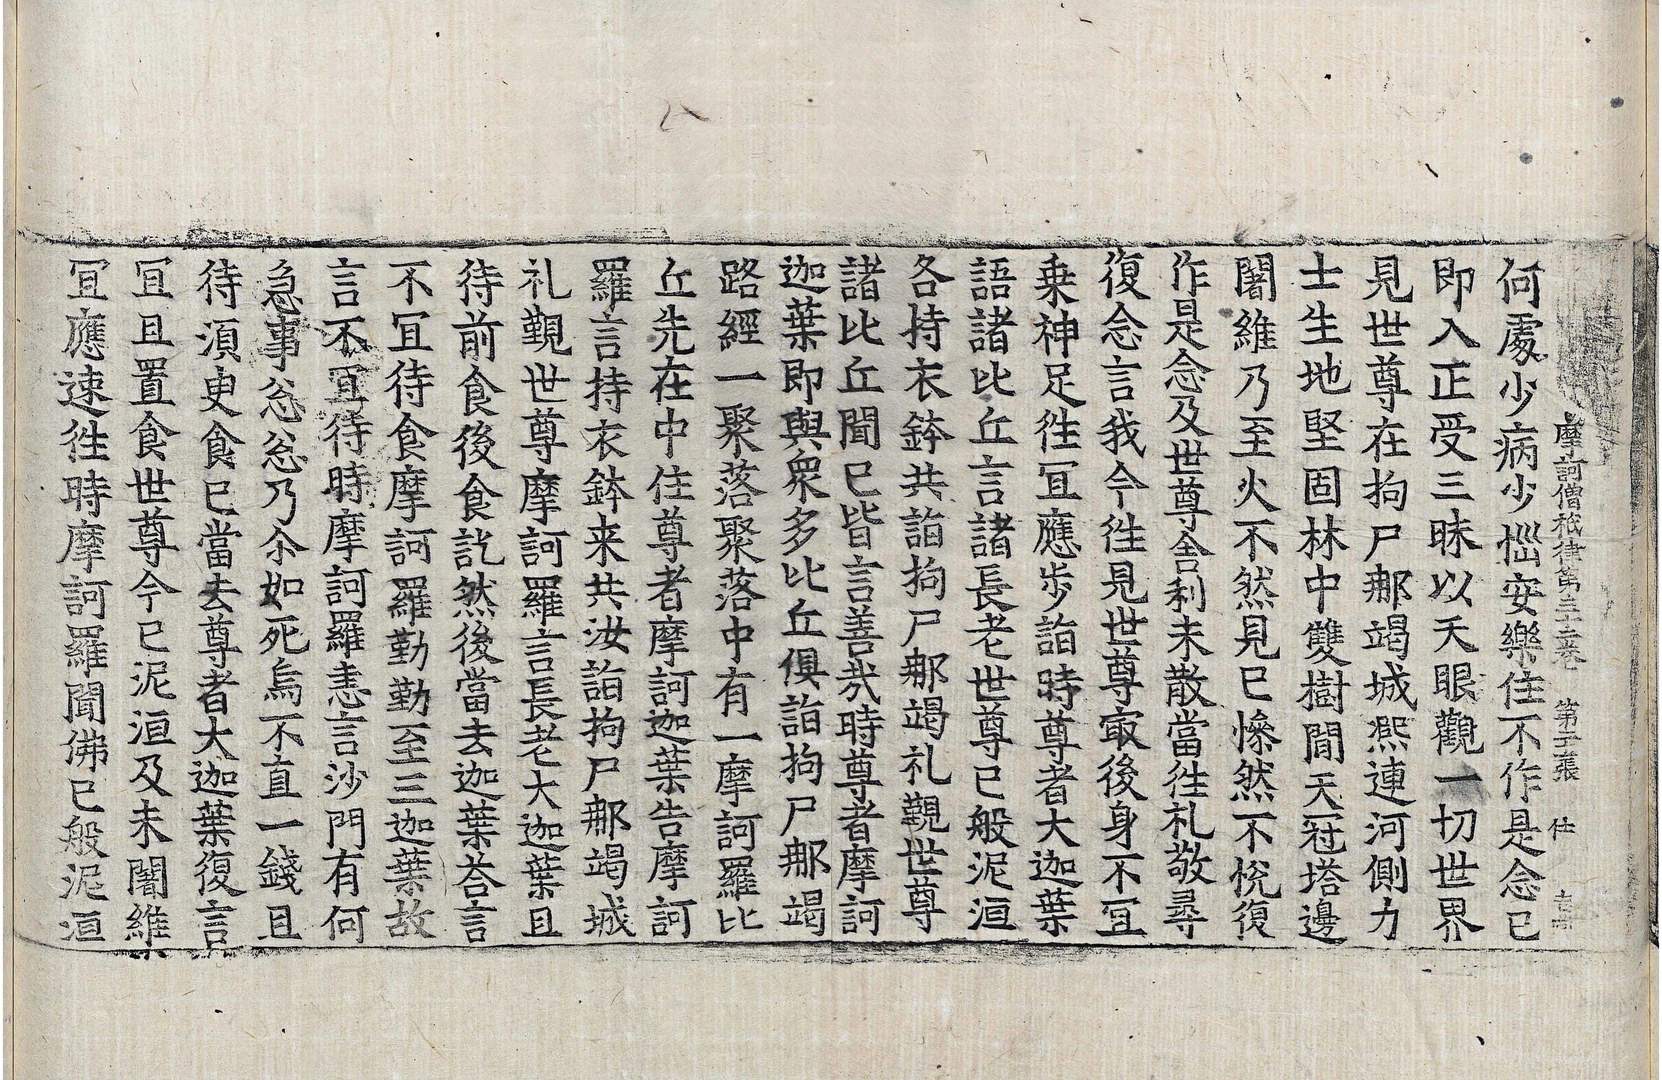 摩訶僧祇律第三十二卷 第二張 仕
何處少病少惱安樂住不作是念已
即入正受三昧以天眼觀一切世界
見世尊在拘尸郍竭城熈連河側力
士生地堅固林中雙樹間天冠塔邊
闍維乃至火不然見已慘然不恱復
作是念及世尊舍利未散當徃礼敬尋
復念言我今徃見世尊㝡後身不冝
乗神足徃冝應步詣時尊者大迦葉
語諸比丘言諸長老世尊已般泥洹
各持衣鉢共詣拘尸郍竭礼覲世尊
諸比丘聞已皆言善㢤時尊者摩訶
迦葉即與衆多比丘俱詣拘尸郍竭
路經一聚落聚落中有一摩訶羅比
丘先在中住尊者摩訶迦葉告摩訶
羅言持衣鉢来共汝詣拘尸郍竭城
礼覲世尊摩訶羅言長老大迦葉且
待前食後食訖然後當去迦葉荅言
不冝待食摩訶羅勤勤至三迦葉故
言不冝待時摩訶羅恚言沙門有何
急事忩忩乃尒如死烏不直一錢且
待須臾食已當去尊者大迦葉復言
冝且置食世尊今已泥洹及未闍維
冝應速徃時摩訶羅聞佛已般泥洹